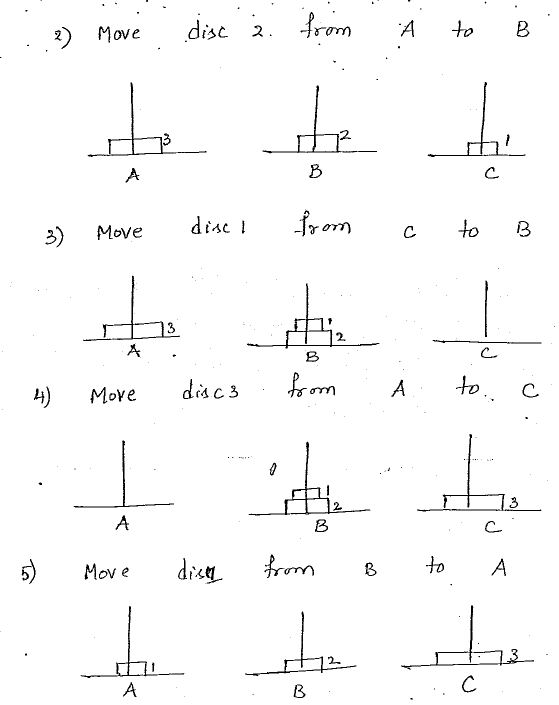 2) Move disc 2. from A to B
3 2 1
A B C
3) Move disc 1 from C to B
1
3 2
A B C
4) Move disc 3 from A to C
1
2 3
A B C
5) Move disc 1 from B to A
1 2 3
A B C